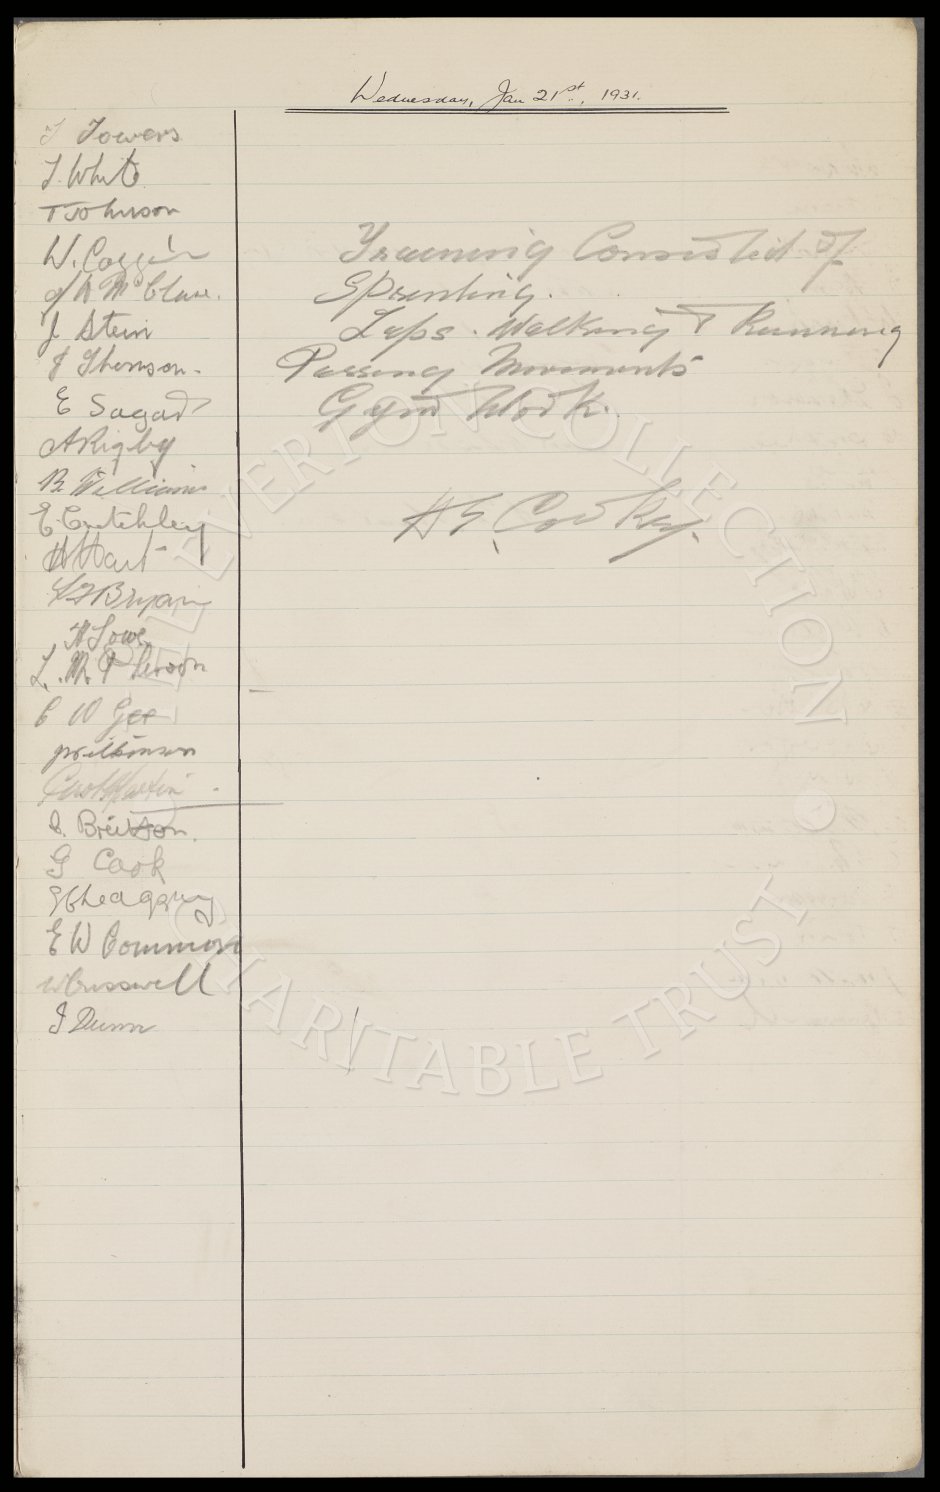 Wednesday, Jan 21st, 1931.
T Towers
T. White
T Johnson
W. Coggins
J W McClure.
J Stein
J Thomson.
E Sagar
A Rigby
B. Williams
E. Critchley
H Hart
L F Bryan
H Lowe
L. McPherson
C W Gee
J Wilkinson
Geo S Martin
C. Britton.
G Cook
EW Common
W Cresswell
J Dunn
Training Consisted of
Sprinting.
Laps. Walking & Running
Passing Movements
Gym Work.
H E Cooke
THE EVERTON COLLECTION
CHARITABLE TRUST